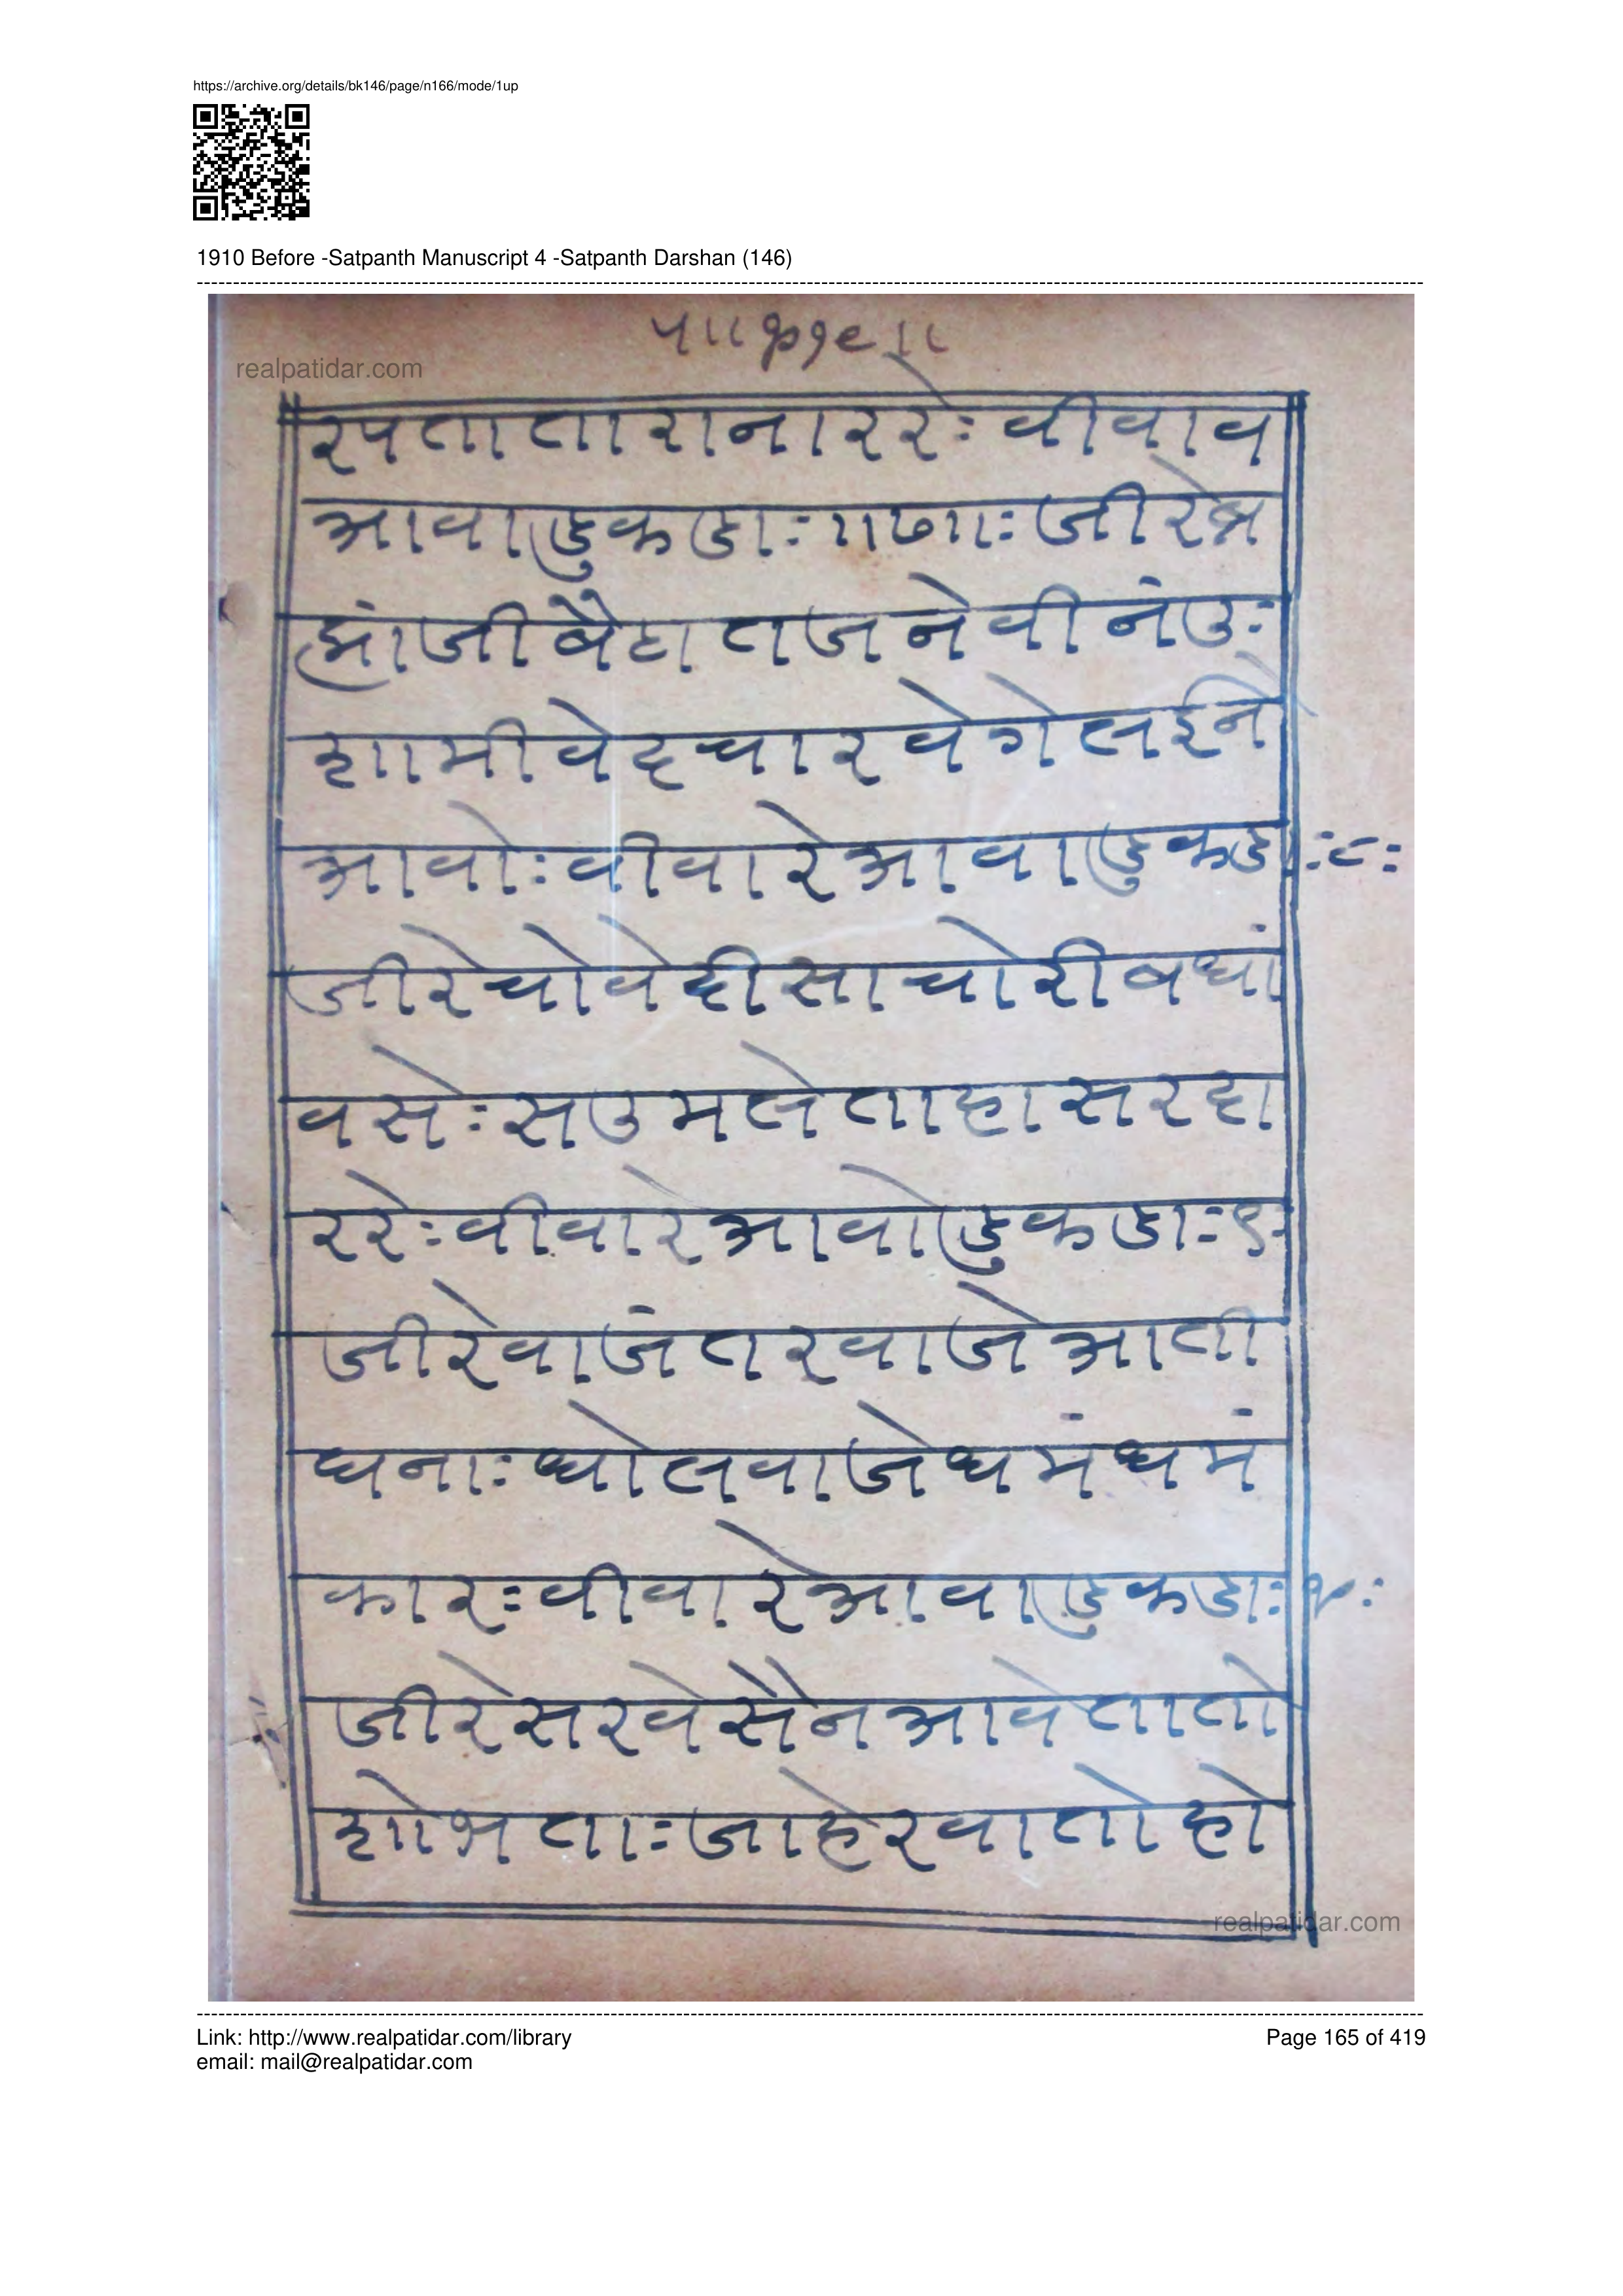 https://archive.org/details/bk146/page/n166/mode/1up
1910 Before -Satpanth Manuscript 4 -Satpanth Darshan (146)
realpatidar.com
रुपतातारानाररेः वीवाव
आवाडुकडाः ॥७॥ः जीरेब्र
ह्मांजीबैठातजनेवीनंउः
शामीवेदचारवेगेलईने
आवोः वीवारेआवाडुकडाः ८ः
जीरेचोवेदीसाचोरीबधां
वसेः सउमलेताहासरदा
ररेः वीवारेआवोडुकडाः ९ः
जीरेवाजंतरवाजेआती
घनाः घोलवाजेधमंधमं
कारः वीवारेआवाडुकडाः १०ः
जीरेसरवेसैनआवेतातो
शोभताः जाहेरवातोहो
realpatidar.com
Link: http://www.realpatidar.com/library
Page 165 of 419
email: mail@realpatidar.com